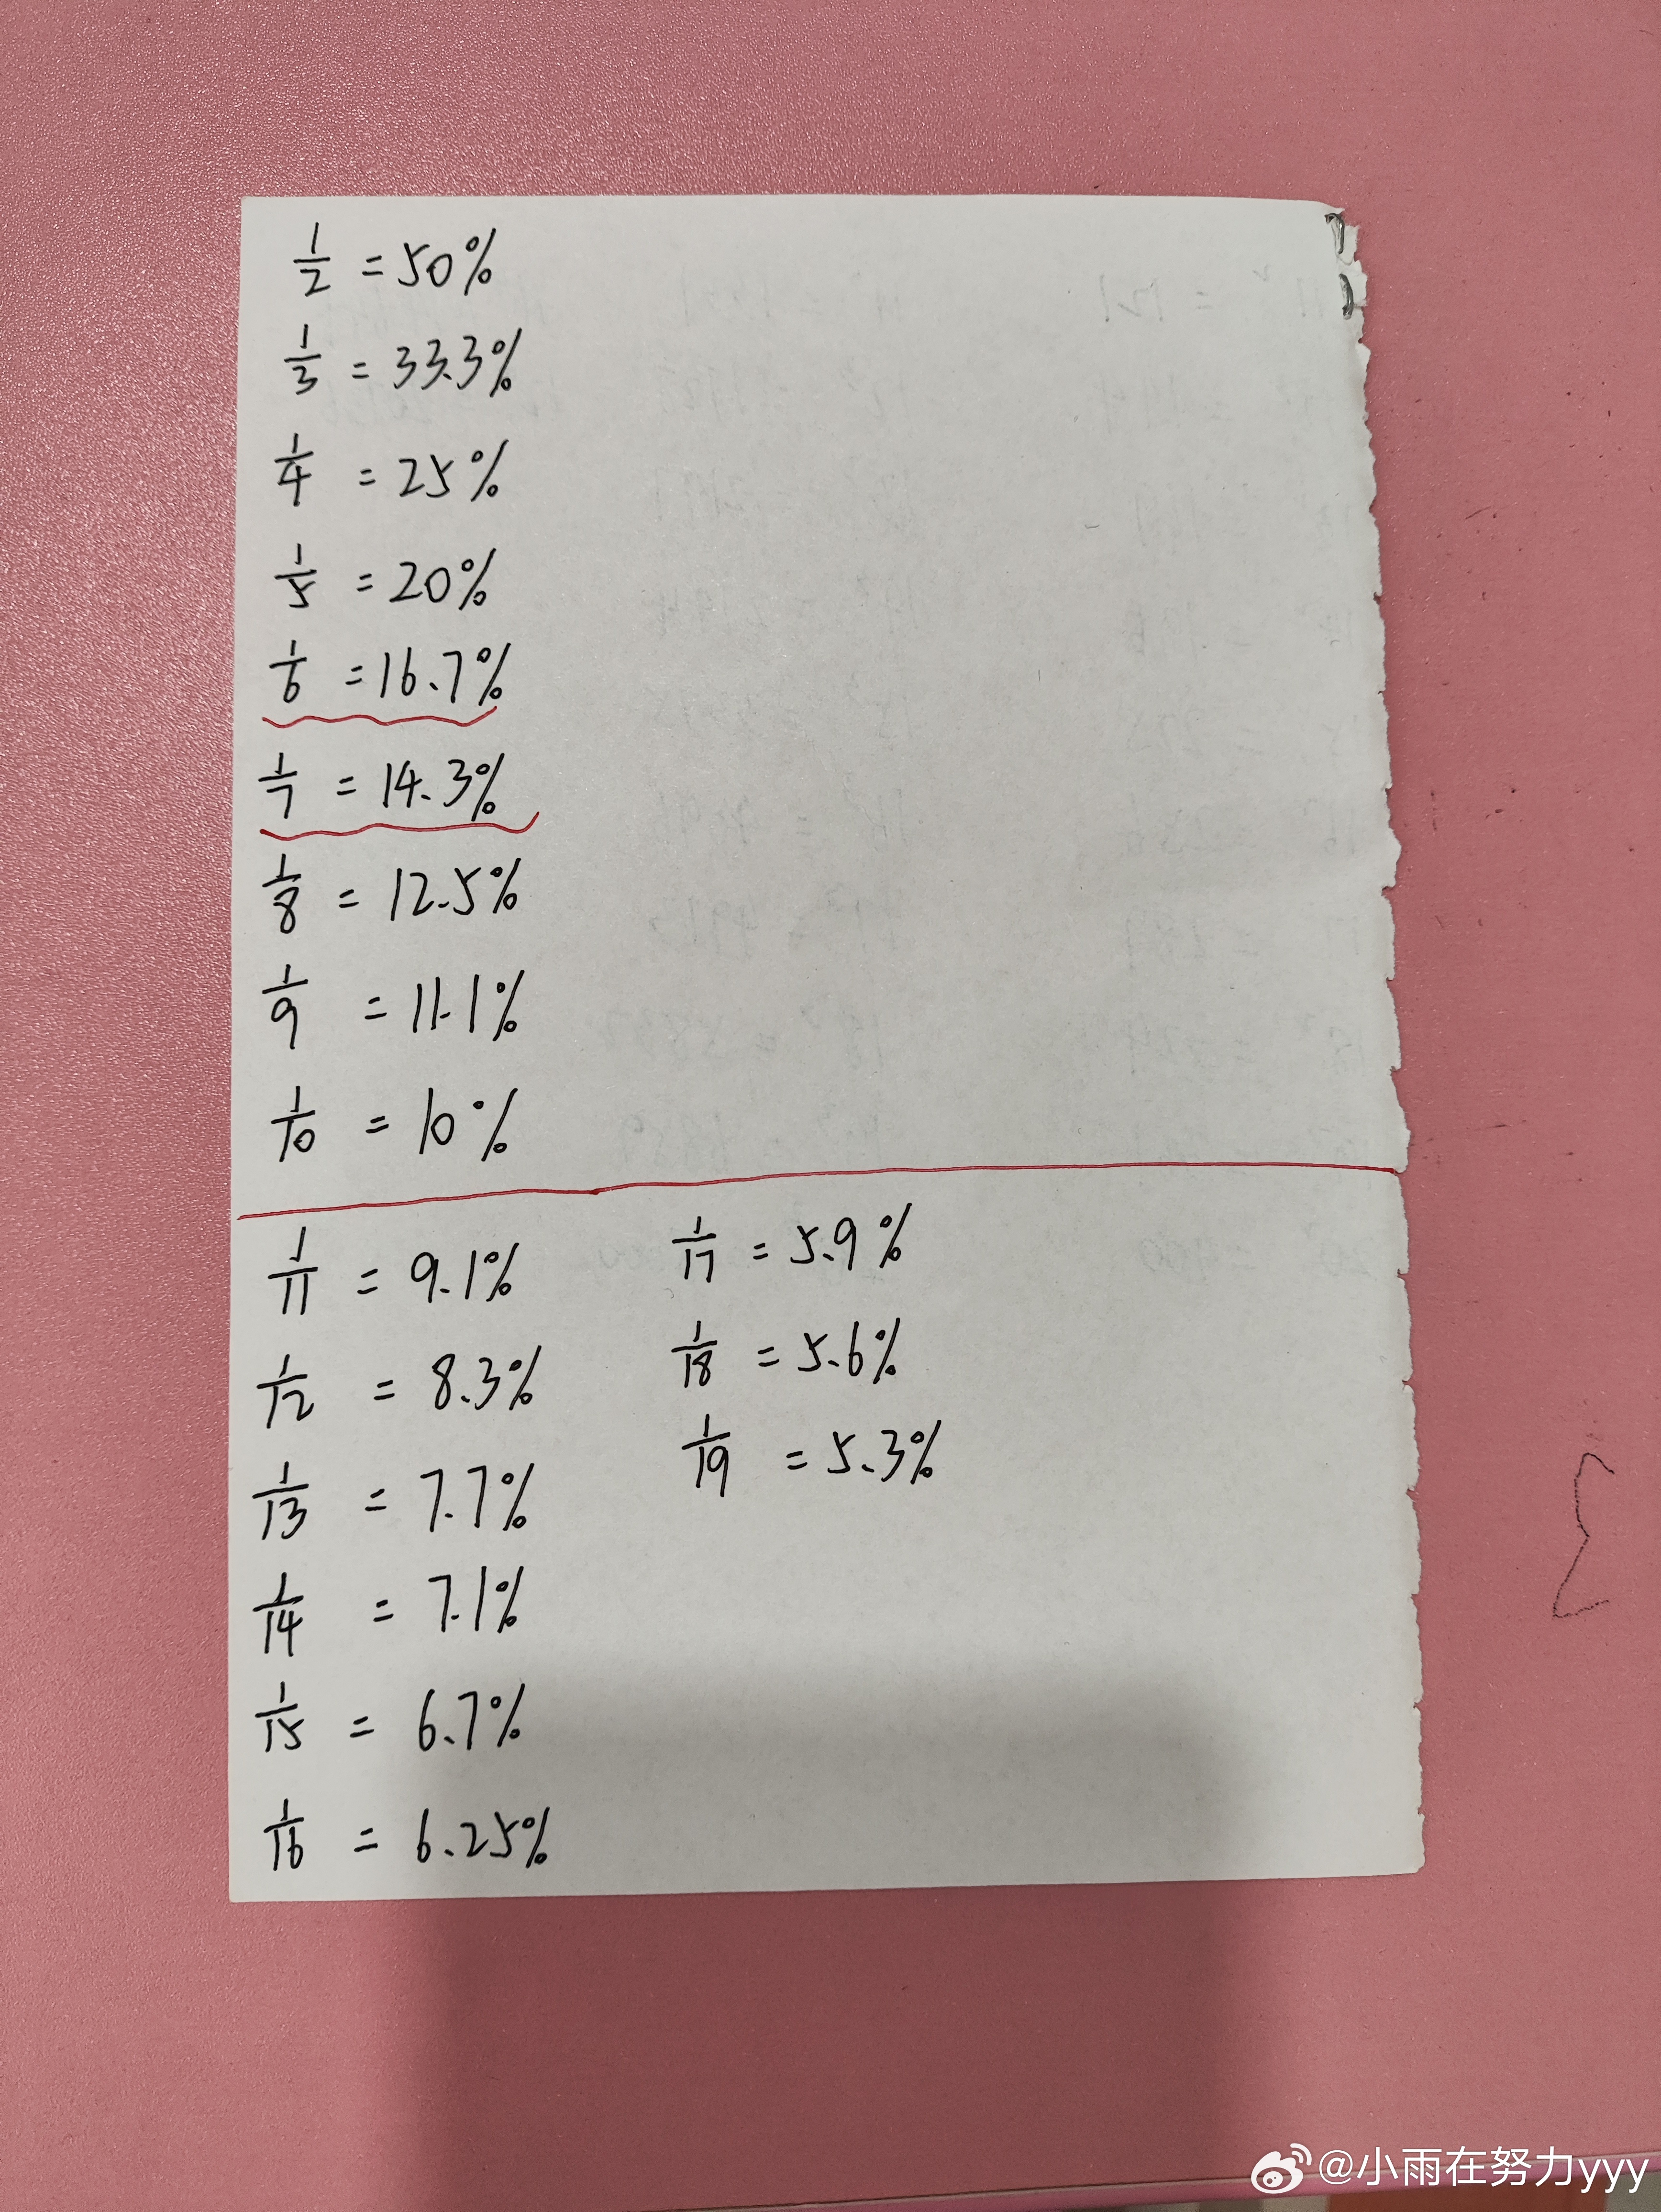 1/2 = 50%
1/3 = 33.3%
1/4 = 25%
1/5 = 20%
1/6 = 16.7%
1/7 = 14.3%
1/8 = 12.5%
1/9 = 11.1%
1/10 = 10%
1/11 = 9.1%
1/12 = 8.3%
1/13 = 7.7%
1/14 = 7.1%
1/15 = 6.7%
1/16 = 6.25%
1/17 = 5.9%
1/18 = 5.6%
1/19 = 5.3%
@小雨在努力yyy